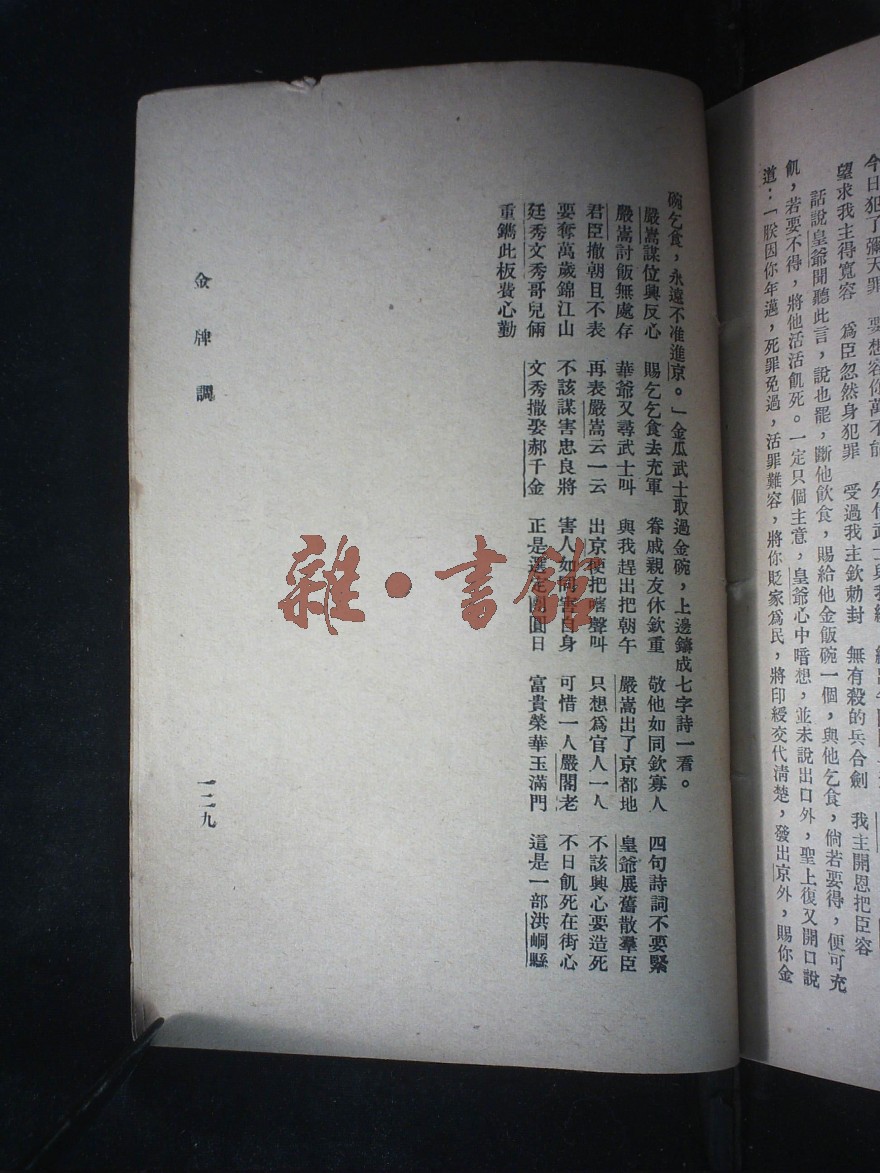 今日犯了彌天罪　要想容你萬不能
望求我主得寬容　爲臣忽然身犯罪　受過我主欽勅封　無有殺的兵合劍　我主開恩把臣容
話說皇爺聞聽此言，說也罷，斷他飲食，賜給他金飯碗一個，與他乞食，倘若要得，便可充
飢，若要不得，將他活活飢死。一定只個主意，皇爺心中暗想，並未說出口外，聖上復又開口說
道：「朕因你年邁，死罪免過，活罪難容，將你貶家爲民，將印綬交代清楚，發出京外，賜你金
碗乞食，永遠不准進京。」金瓜武士取過金碗，上邊鑄成七字詩一看。
嚴嵩謀位興反心　賜乞乞食去充軍　眷戚親友休欽重　敬他如同欽寡人　四句詩詞不要緊
嚴嵩討飯無處存　華爺又尋武士叫　與我趕出把朝午　嚴嵩出了京都地　皇爺展舊散羣臣
君臣撤朝且不表　再表嚴嵩云一云　出京便把聲叫　只想爲官人一人　不該興心要造死
要奪萬歲錦江山　不該謀害忠良將　害人如同害自身　可惜一人嚴閣老　不日飢死在街心
廷秀文秀哥兒倆　文秀撒娶郝千金　正是選定團圓日　富貴榮華玉滿門　這是一部洪峒縣
重鐫此板費心勤
金牌調
一二九
雜・書館